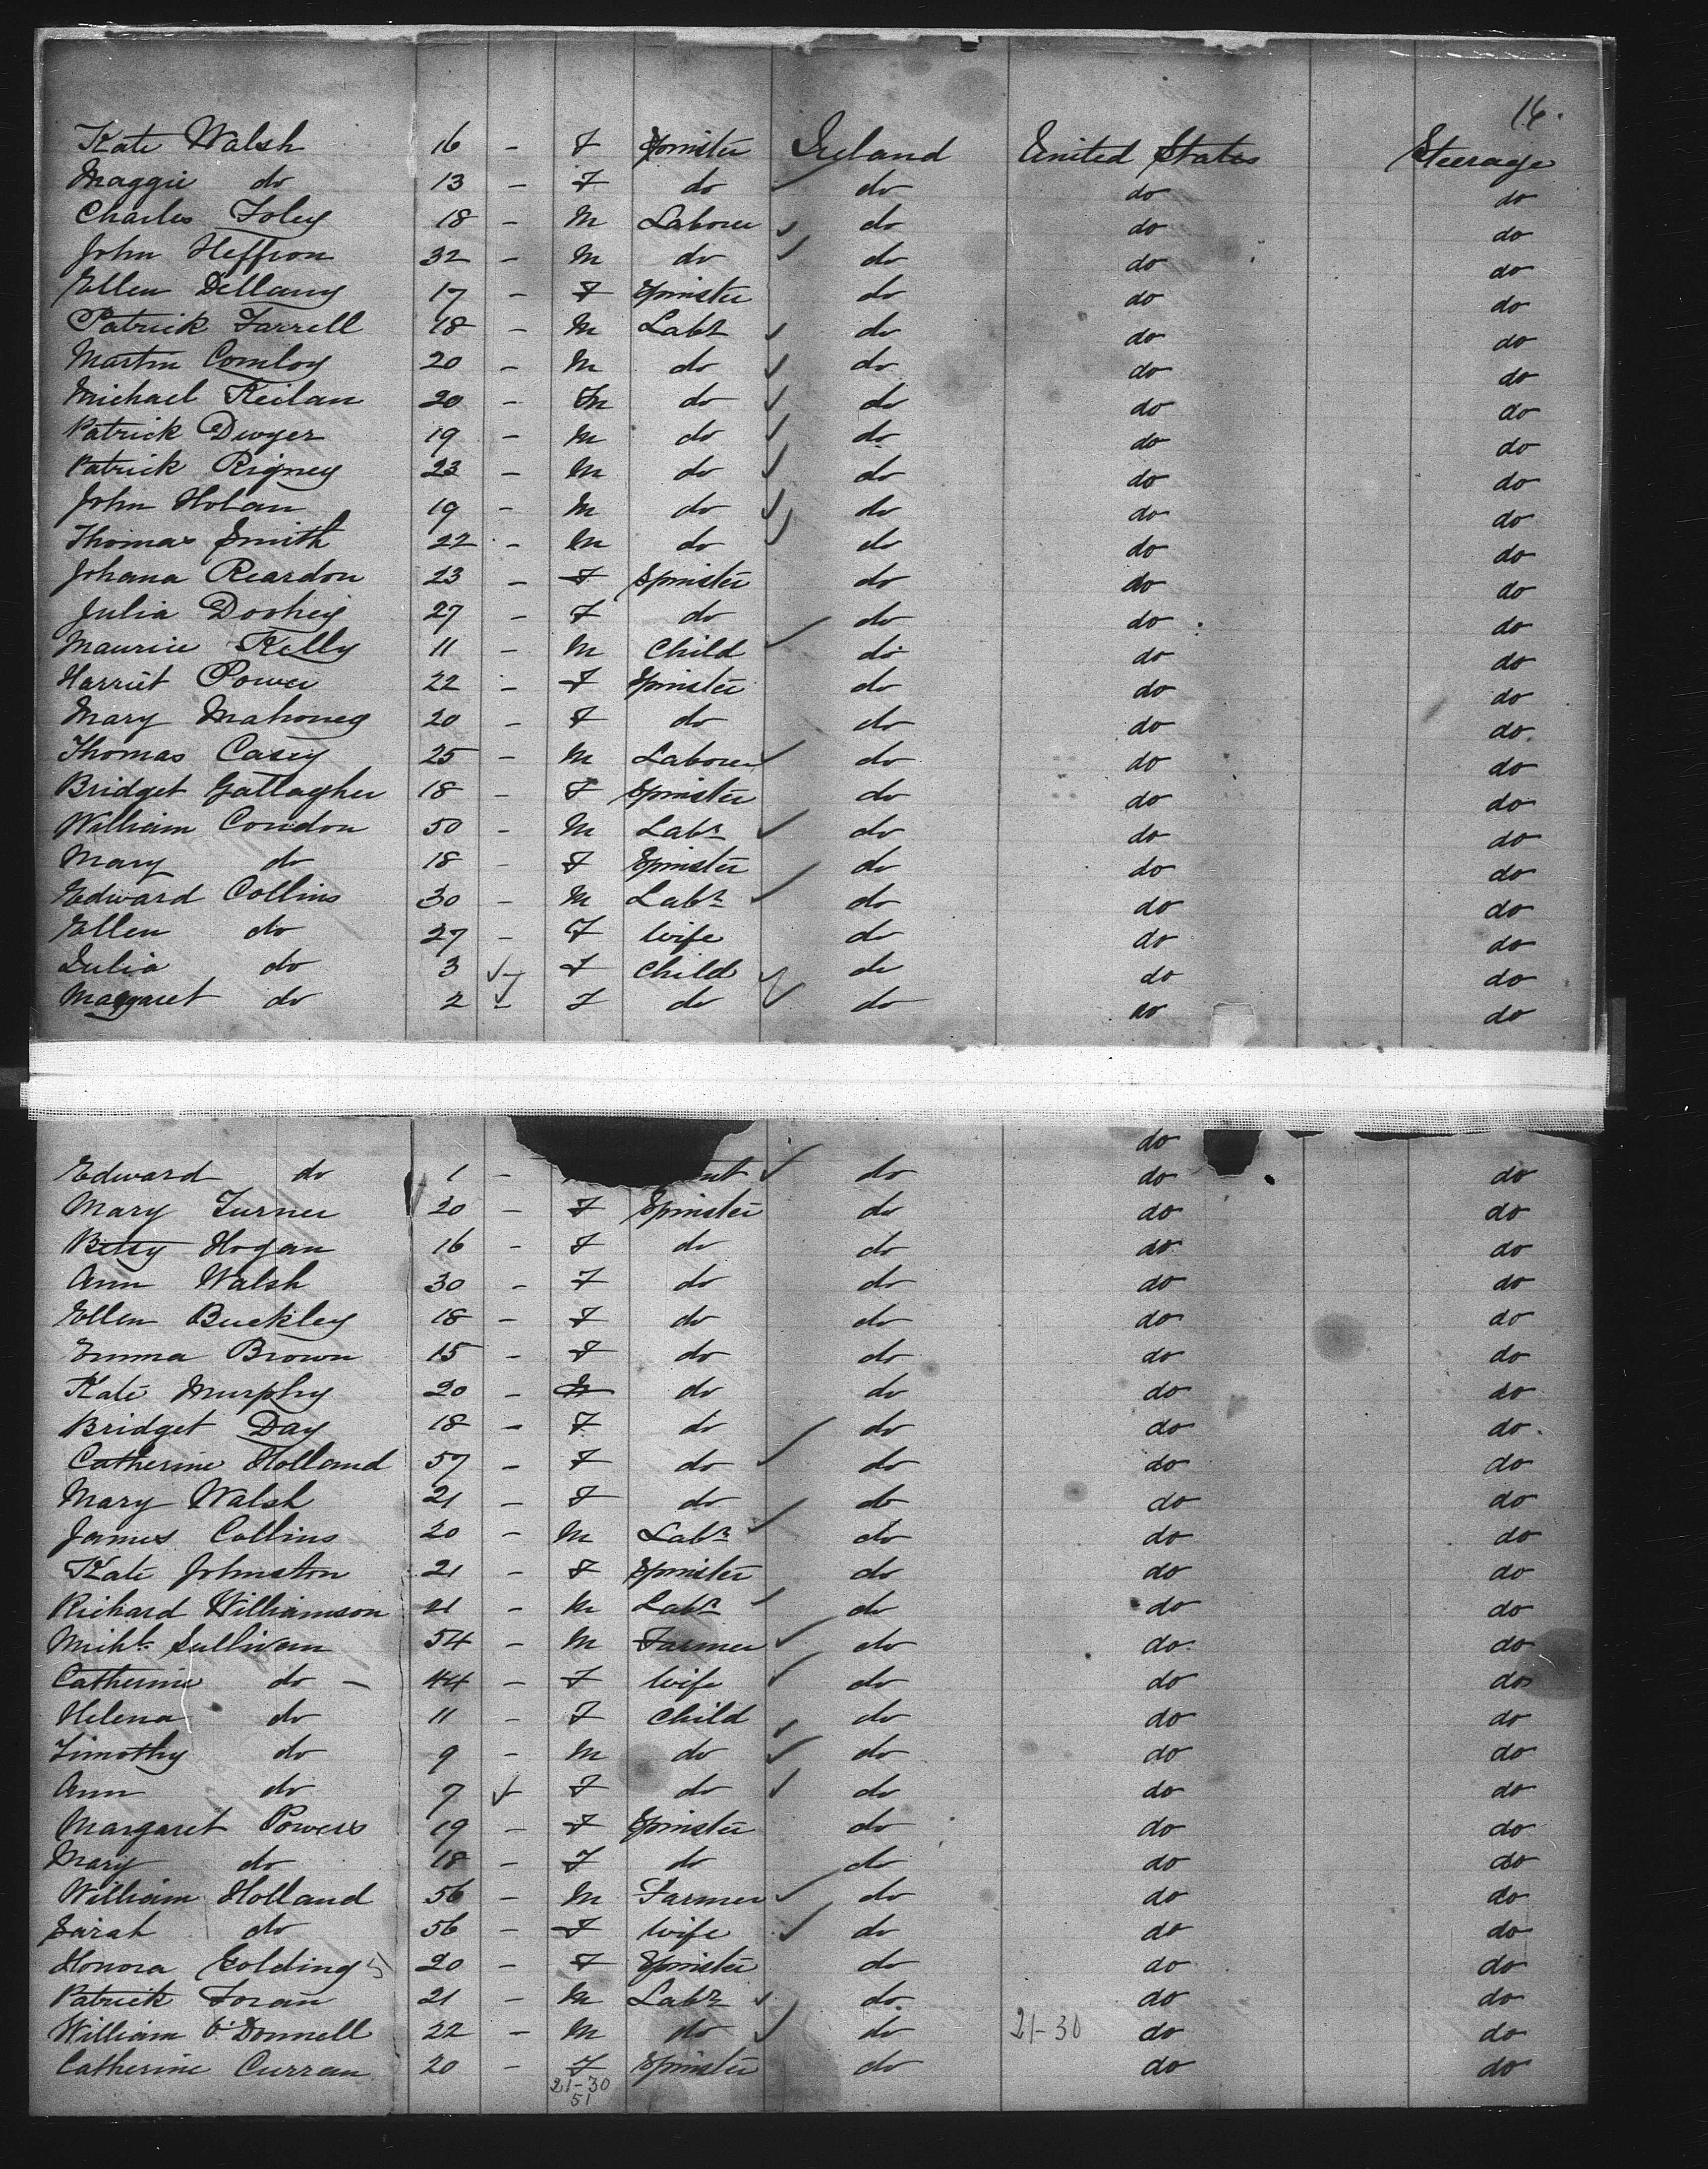 16.
Kate Walsh 16 - F Spinster Ireland United States Steerage
Maggie do 13 - F do do do do
Charles Foley 18 - M Labourer do do do
John Heffron 32 - M do do do do
Ellen Dellany 17 - F Spinster do do do
Patrick Farrell 18 - M Labr do do do
Martin Conroy 20 - M do do do do
Michael Keilan 20 - M do do do do
Patrick Dwyer 19 - M do do do do
Patrick Rigney 23 - M do do do do
John Holan 19 - M do do do do
Thomas Smith 22 - M do do do do
Johana Reardon 23 - F Spinster do do do
Julia Doohey 27 - F do do do do
Maurice Kelly 11 - M Child do do do
Harriet Power 22 - F Spinster do do do
Mary Mahoney 20 - F do do do do
Thomas Casey 25 - M Labourer do do do
Bridget Gallagher 18 - F Spinster do do do
William Condon 50 - M Labr do do do
Mary do 18 - F Spinster do do do
Edward Collins 30 - M Labr do do do
Ellen do 27 - F Wife do do do
Julia do 3 - F Child do do do
Margaret do 2 - F do do do do
do
Edward do 1 - do do do
Mary Turner 20 - F Spinster do do do
Betsy Hogan 16 - F do do do do
Ann Walsh 30 - F do do do do
Ellen Buckley 18 - F do do do do
Emma Brown 15 - F do do do do
Kate Murphy 20 - do do do do
Bridget Day 18 - F do do do do
Catherine Holland 57 - F do do do do
Mary Walsh 21 - F do do do do
James Collins 20 - M Labr do do do
Kate Johnston 21 - F Spinster do do do
Richard Williamson 21 - M Labr do do do
Michl Sullivan 54 - M Farmer do do do
Catherine do - 44 - F Wife do do do
Helena do 11 - F Child do do do
Timothy do 9 - M do do do do
Ann do 7 F do do do do
Margaret Powers 19 - F Spinster do do do
Mary do 18 - F do do do do
William Holland 56 - M Farmer do do do
Sarah do 56 - F Wife do do do
Honora Golding 20 - F Spinster do do do
Patrick Foran 21 - M Labr do do do
William O'Donnell 22 - M do do 21-30 do do
Catherine Curran 20 - F Spinster do do do
21-30
51